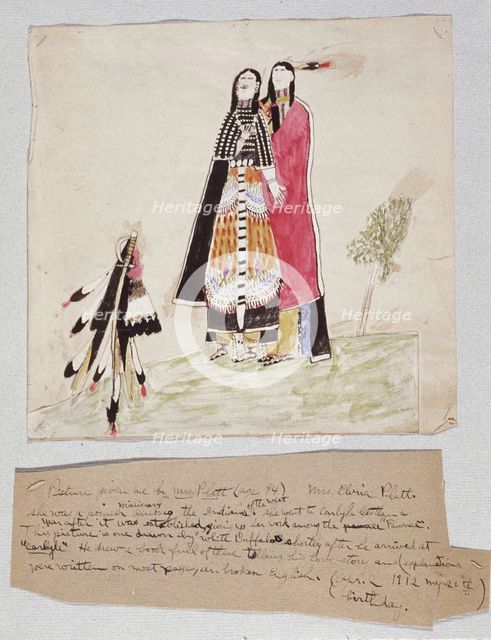 Picture given me by Mrs Platt (age 94) Mrs. Elvira Platt.
She was a pioneer missionary among the Indians of the west She went to Carlyle
year after it was established, giving up her work among the "Pawnee".
This picture is one drawn by White Buffalo shortly after he arrived at
"Carlyle" He drew a book full of these telling his love story and (explanations
were written on most pages, in broken English. 1912 my 20th
birthday.
Heritage
Heritage
Heritage
Heritage
Heritage
Heritage
Heritage